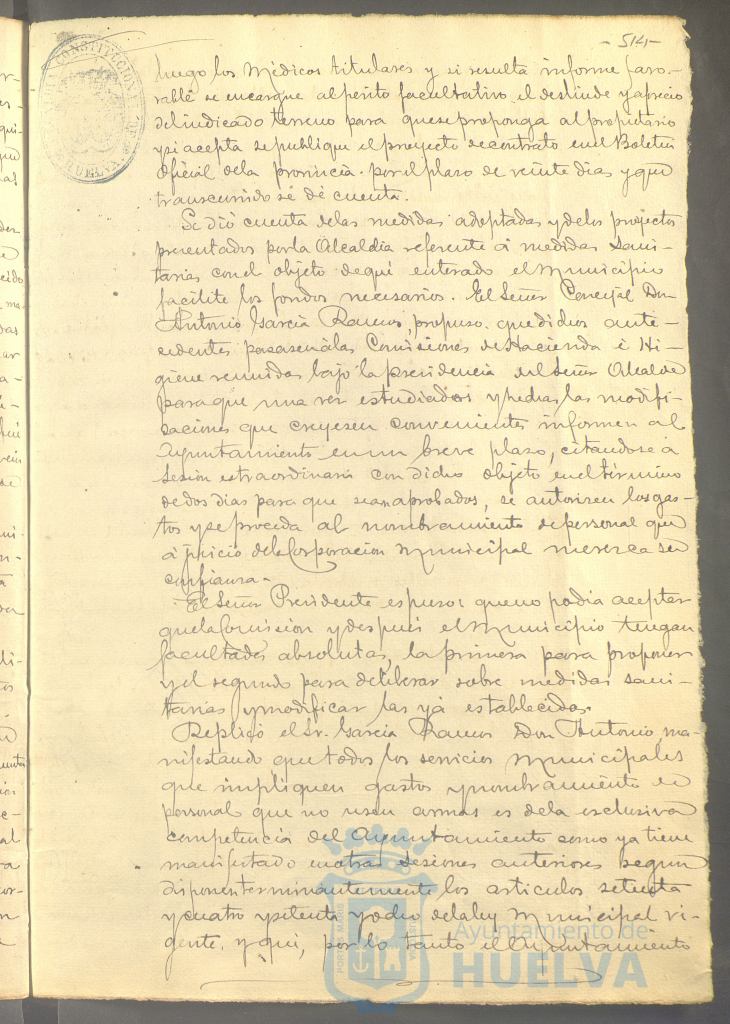 - 514 -
luego los Médicos titulares y si resulta informe favo-
rable se encargue al perito facultativo el deslinde y aprecio
del indicado terreno para que se proponga al propietario
y si acepta se publique el proyecto de contrato en el Boletin
Oficial de la provincia por el plazo de veinte dias y que
transcurrido se dé cuenta.
Se dió cuenta de las medidas adoptadas y de los proyectos
presentados por la Alcaldia referente á medidas sani-
tarias con el objeto de que enterado el Municipio
facilite los fondos necesarios. El Señor Concejal Don
Antonio Garcia Ramos, propuso que dichos ante-
cedentes pasasen á las Comisiones de Hacienda é Hi-
giene reunidas bajo la presidencia del Señor Alcalde
para que una vez estudiados y hechas las modifi-
caciones que creyesen convenientes informen al
Ayuntamiento en un breve plazo, citandose á
sesion extraordinaria con dicho objeto en el término
de dos dias para que sean aprobados, se autoricen los gas-
tos y se proceda al nombramiento de personal que
á juicio de la Corporacion Municipal merezca su
confianza.
El Señor Presidente espuso: que no podia aceptar
que la Comision y despues el Municipio tengan
facultades absolutas, la primera para proponer
y el segundo para deliberar sobre medidas sani-
tarias y modificar las yá establecidas.
Replicó el Sr. Garcia Ramos Don Antonio ma-
nifestando que todos los servicios Municipales
que impliquen gastos y nombramiento de
personal que no usen armas es de la esclusiva
competencia del Ayuntamiento como ya tiene
manifestado en otras sesiones anteriores segun
disponen terminantemente los articulos setenta
y cuatro y setenta y ocho de la ley Municipal vi-
gente, y que, por lo tanto el Ayuntamiento
Ayuntamiento de
HUELVA